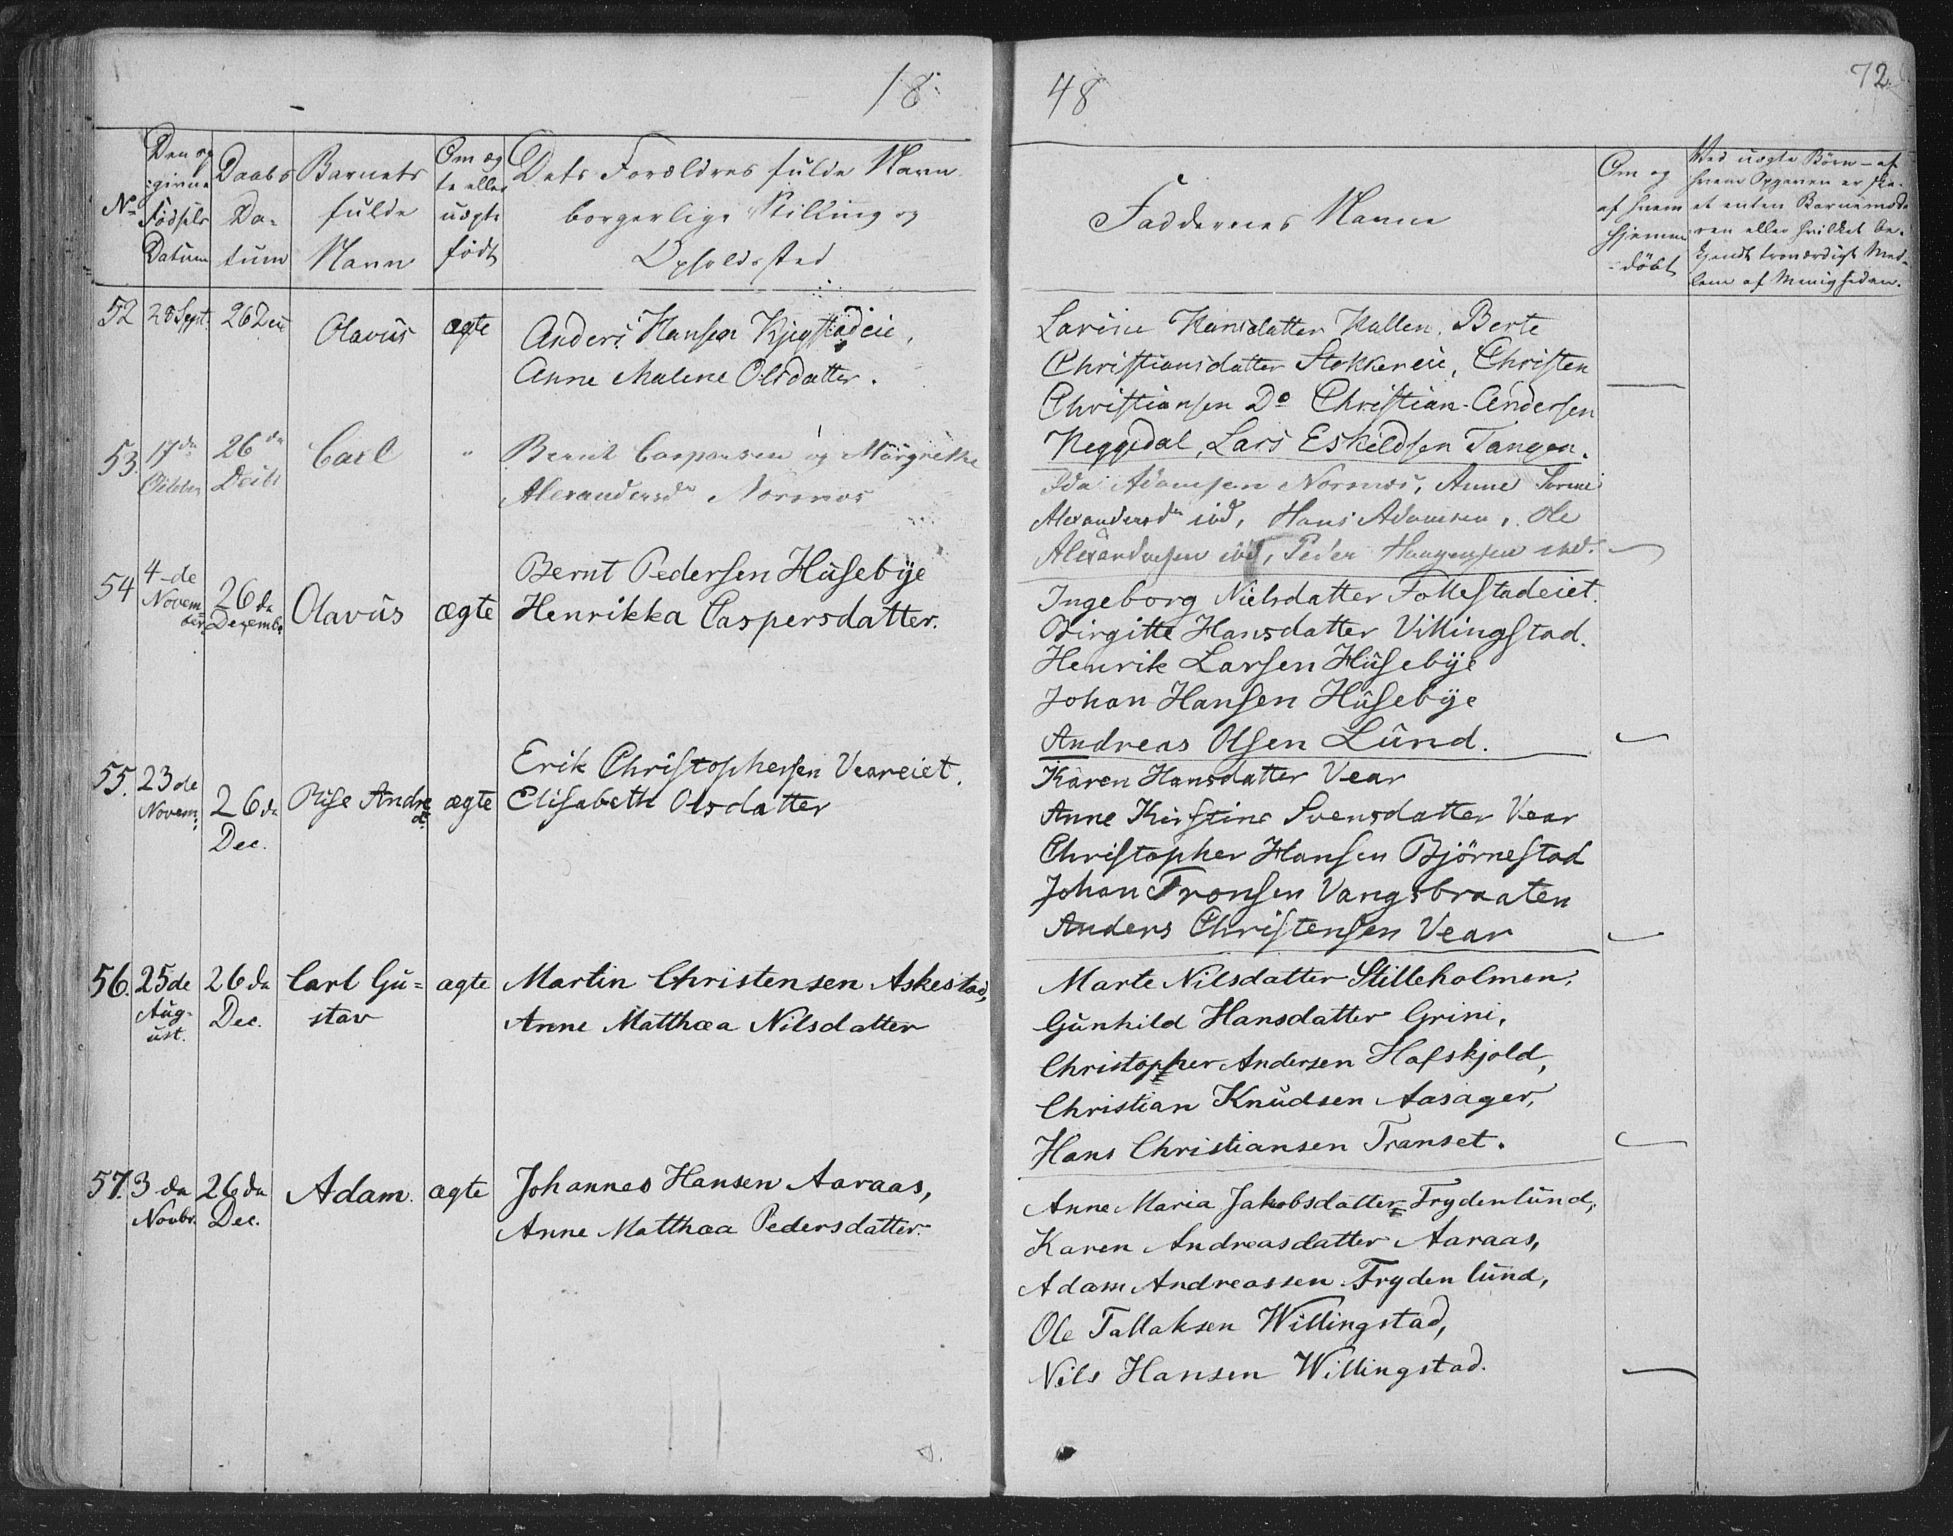 18
48
72.
No
Den op
givne
Födsels
Datum
Daabs
Da-
tum
Barnets
fulde
Navn
Om æg
te eller
uægte
født
Dets Forældres fulde Navn
borgerlige Stilling og
Opholdssted
Faddernes Navne
Om og
af hvem
hjemme
døbt
Ved uægte Børn – af
hvem Opgaven er ske-
et enten Barnemode
ren eller hvilket be-
kjendt troværdigt Med-
lem af Menigheden.
52
28 Sept.
26 Dec
Olavus
ægte
Anders Hansen
Anne Malene Olsdatter.
Hansdatter Berte
Christiansdatter Stokkereie, Christen
Christiansen Do Christian Andersen
Heggedal, Lars Eskildsen Tangen.
53.
17de
Octbr
26de
Decb
Carl
"
Bernt Caspersen og Margrethe
Alexandersdr Norsnæs
Ida Adamsen Norsnæs, Anne
Alexandersdr ibd, Hans Adamsen, Ole
Alexandersen ibd, Peder Haagensen ibd.
54
4-de
Novem
ber
26de
Dezembr
Olavus
ægte
Bernt Pedersen Husebye
Henrikka Caspersdatter.
Ingeborg Nielsdatter Follestadeiet.
Birgitte Hansdatter Villingstad.
Henrik Larsen Husebye
Johan Hansen Husebye
Andreas Olsen Lund.
55.
23de
Novem:
26de
Dec.
Andre
ægte
Erik Christophersen Veareiet.
Elisabeth Olsdatter
Karen Hansdatter Vear
Anne Kirstine Svensdatter Vear
Christopher Hansen Björnestad
Johan Tronsen Vangsbraaten
Anders Christensen Vear
56.
25de
Aug-
ust.
26de
Dec.
Carl Gu=
stav
ægte
Martin Christensen Askestad,
Anne Matthæa Nilsdatter
Marte Nilsdatter Stilleholmen,
Gunhild Hansdatter Grini,
Christopher Andersen Hafskjold,
Christian Knudsen Aasager,
Hans Christiansen Transet.
57.
3-de
Novbr.
26de
Dec.
Adam.
ægte
Johannes Hansen Aaraas,
Anne Matthæa Pedersdatter.
Anne Maria Jakobsdatter Frydenlund,
Karen Andreasdatter Aaraas,
Adam Andreassen Frydenlund,
Ole Tallaksen Willingstad,
Nils Hansen Willingstad.